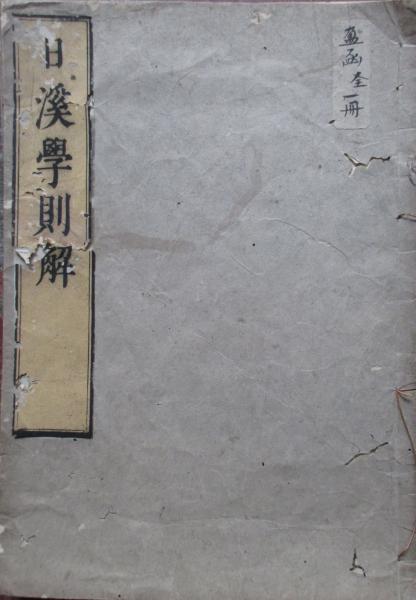 藍函全一冊
日溪學則解